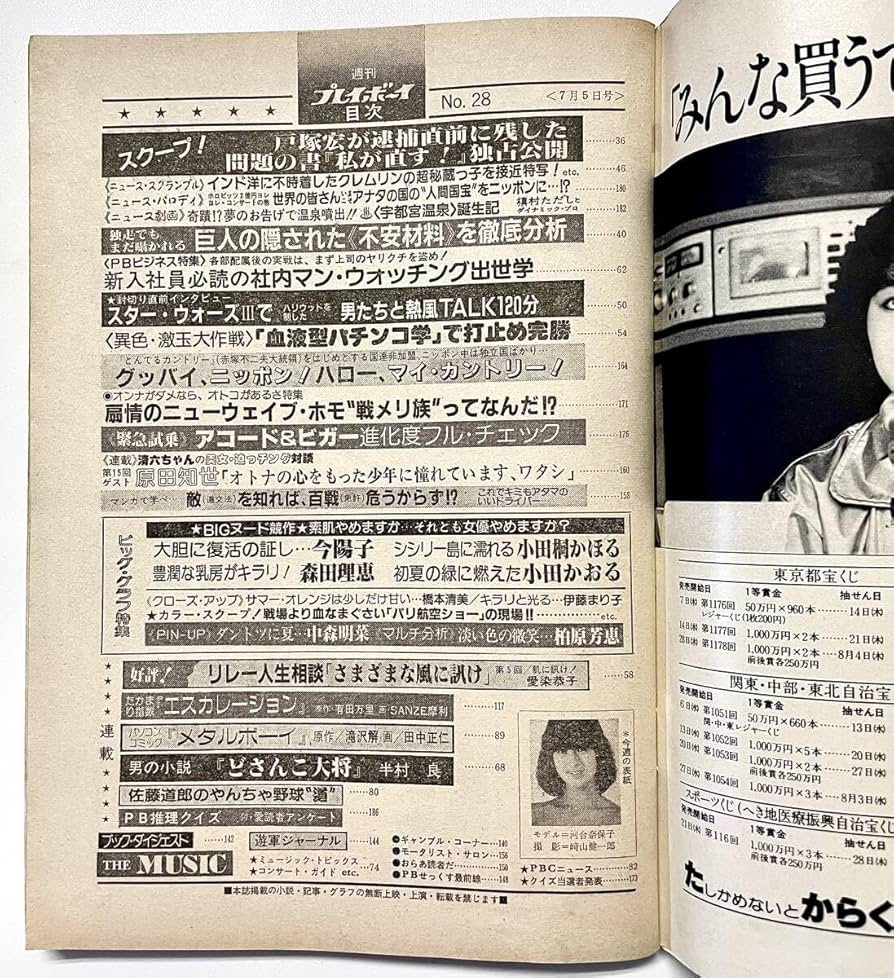 週刊
プレイボーイ
目次
No. 28
<7月5日号>
★ ★ ★ ★ ★
スクープ!
戸塚宏が逮捕直前に残した
問題の書『私が直す!』独占公開……36
《ニュース・スクランブル》インド洋に不時着したクレムリンの超秘蔵っ子を接近特写! etc.……46
《ニュース・パロディ》世界の皆さんアナタの国の“人間国宝”をニッポンに…!?……180
《ニュース劇画》奇蹟!?夢のお告げで温泉噴出!!♨《宇都宮温泉》誕生記
槇村ただしと
ダイナミック・プロ……182
独走でも
まだ囁かれる
巨人の隠された《不安材料》を徹底分析……40
〈PBビジネス特集〉各部配属後の実戦は、まず上司のヤリクチを盗め!
新入社員必読の社内マン・ウォッチング出世学……62
★封切り直前インタビュー
スター・ウォーズIIIで
ハリウッドを
男たちと熱風TALK120分……50
〈異色・激玉大作戦〉「血液型パチンコ学」で打止め完勝……54
「とんでるカントリー」(赤塚不二夫大統領)をはじめとする国連非加盟、ニッポン中は独立国ばかり…
グッバイ、ニッポン!ハロー、マイ・カントリー!……164
●オンナがダメなら、オトコがあるさ特集
扇情のニューウェイブ・ホモ“戦メリ族”ってなんだ!?……171
《緊急試乗》アコード&ビガー進化度フル・チェック……176
《連載》清六ちゃんの美女・迫っチング対談
第15回
ゲスト
原田知世「オトナの心をもった少年に憧れています、ワタシ」……160
マンガで学べ…
敵(道交法)を知れば、百戦(免許)危うからず!?
これでキミもアタマの
いいドライバー……158
ビッグ・グラフ特集
★BIGヌード競作★素肌やめますか…それとも女優やめますか?
大胆に復活の証し…今陽子
シシリー島に濡れる小田桐かほる
豊潤な乳房がキラリ!森田理恵
初夏の緑に燃えた小田かおる
〈クローズ・アップ〉サマー・オレンジは少しだけ甘い…橋本清美/キラリと光る…伊藤まり子
★カラー・スクープ!戦場より血なまぐさい「パリ航空ショー」の現場!!
〈PIN-UP〉ダントツに夏…中森明菜〈マルチ分析〉淡い色の微笑…柏原芳恵
連載
好評!
リレー人生相談「さまざまな風に訊け」
第5回/肌に訊け!
愛染恭子……58
たかまり指数
『エスカレーション』原作・有田万里 画・SANZE摩利……117
パソコン
コミック
『メタルボーイ』原作/滝沢解 画/田中正仁……89
男の小説『どさんこ大将』半村 良……68
佐藤道郎のやんちゃ野球“道”……80
PB推理クイズ 付・愛読者アンケート……186
ブック・ダイジェスト……142
THE MUSIC
遊軍ジャーナル……144
★ミュージック・トピックス
★コンサート・ガイド etc.……74
●ギャンブル・コーナー…140
●モータリスト・サロン…156
●おらあ読者だ……150
●PBせっくす最前線……148
*今週の表紙
モデル=河合奈保子
撮 影=崎山健一郎
★PBCニュース……83
★クイズ当選者発表……173
■本誌掲載の小説・記事・グラフの無断上映・上演・転載を禁じます■
「みんな買うて
東京都宝くじ
発売開始日
1等賞金
抽せん日
7日㈭ 第1176回 50万円×960本……14日㈭
レジャーくじ(1枚200円)
14日㈭ 第1177回 1,000万円×2本……21日㈭
28日㈭ 第1178回 1,000万円×2本……8月4日㈭
前後賞各250万円
関東・中部・東北自治宝
発売開始日
1等賞金
抽せん日
6日㈬ 第1051回 50万円×660本……13日㈬
関・中・東レジャーくじ
13日㈬ 第1052回 1,000万円×5本……20日㈬
20日㈬ 第1053回 1,000万円×2本……27日㈬
前後賞各250万円
27日㈬ 第1054回 1,000万円×3本……8月3日㈬
スポーツくじ(へき地医療振興自治宝く
発売開始日
1等賞金
抽せん日
21日㈭ 第116回 1,000万円×3本……28日㈭
前後賞各250万円
たしかめないとからく